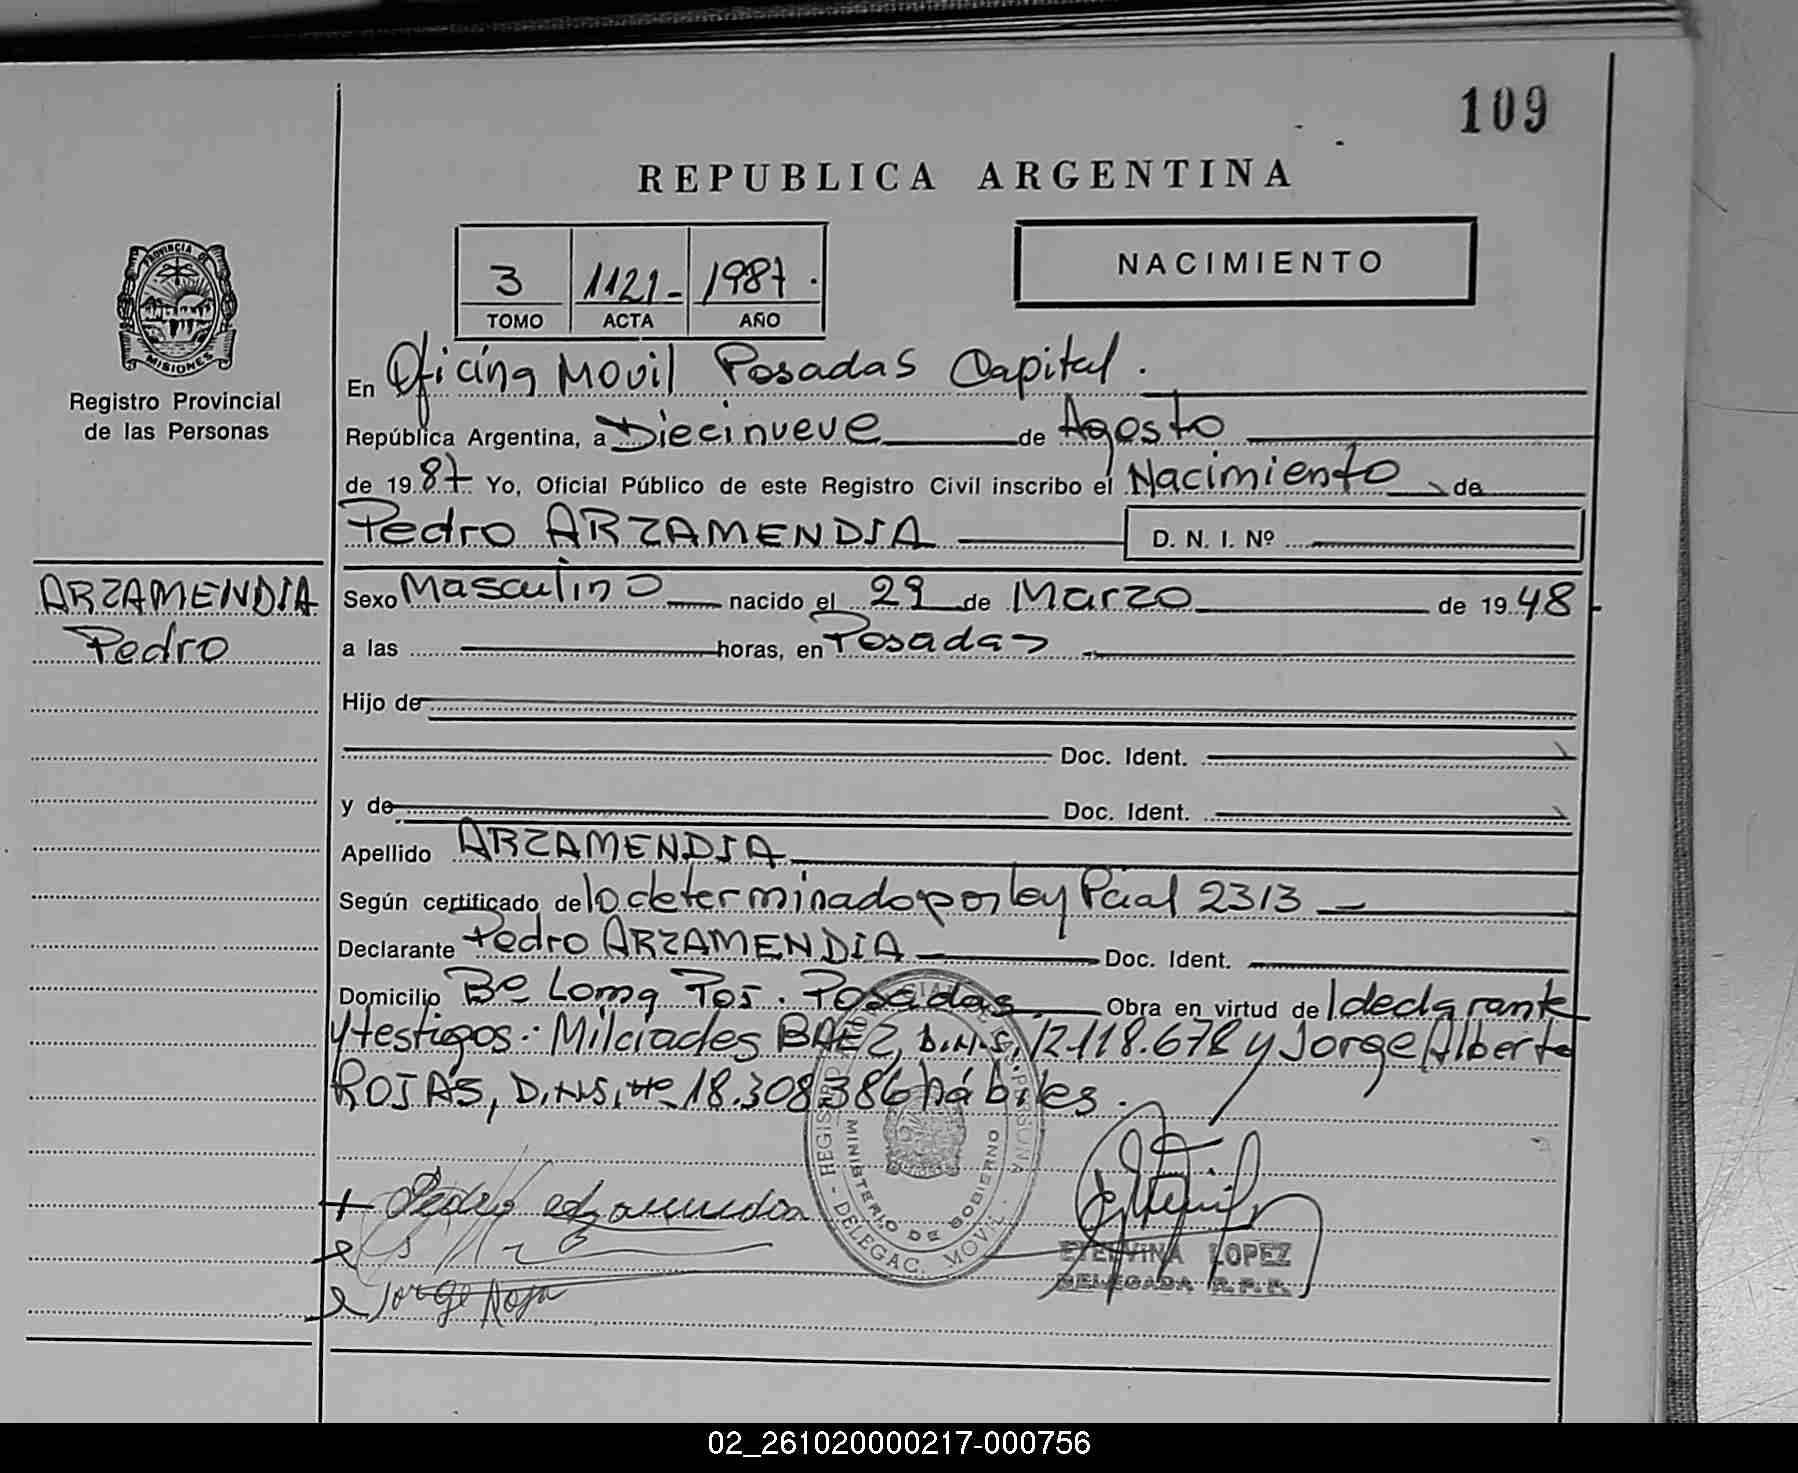 109
REPUBLICA ARGENTINA
3 1121- 1987.
TOMO ACTA AÑO
NACIMIENTO
PROVINCIA DE
MISIONES
Registro Provincial
de las Personas
En Oficina Movil Posadas Capital.
República Argentina, a Diecinueve de Agosto
de 1987 Yo, Oficial Público de este Registro Civil inscribo el Nacimiento de
Pedro ARZAMENDIA D. N. I. Nº
ARZAMENDIA
Pedro
Sexo Masculino nacido el 29 de Marzo de 1948
a las horas, en Posadas
Hijo de
Doc. Ident.
y de Doc. Ident.
Apellido ARZAMENDIA
Según certificado de lo determinado por ley Pcial 2313
Declarante Pedro ARZAMENDIA Doc. Ident.
Domicilio Bº Loma Pos. Posadas Obra en virtud de l declarante
y testigos: Milciades BAEZ, D.N.I. 12.118.678 y Jorge Alberto
ROJAS, D.N.I. Nº 18.308.386 hábiles.
MINISTERIO DE GOBIERNO
DELEGAC. MOVIL
Pedro
Jorge Rojas
ETELVINA LOPEZ
DELEGADA R.P.P.
02_261020000217-000756